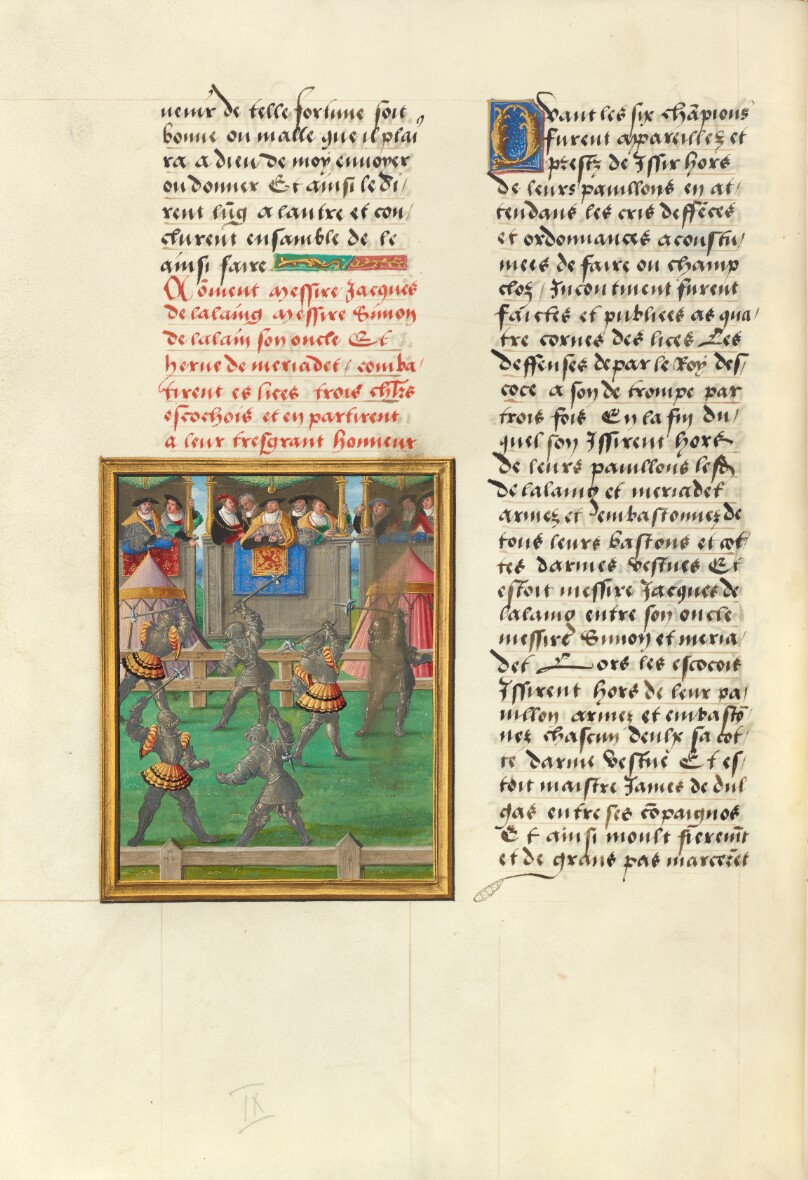 uenir de telle fortune soit
bonne ou malle que il plai
ra a dieu de moy enuoyer
ou donner Et ainsi le di/
rent lũg a lautre et con/
clurent ensamble de le
ainsi faire
Cõment messire Jacques
de lalaing messire Simon
de lalain son oncle Et
herue de meriadet / comba/
tirent es lices trois chl̃rs
escochois et en partirent
a leur tresgrant honneur
Qvant les six chãpions
furent appareillez et
prestz de Issir hors
de leurs pauillons en at/
tendans les cris deffẽces
et ordonnances acoustu/
mees de faire ou champ
clos / Incontinent furent
faictes et publiees as qua/
tre cornes des lices Les
deffenses de par le Roy des/
coce a son de trompe par
trois fois En la fin du/
quel son Issirent hors
de leurs pauillons lesd
de lalaing et meriadet
armez et embastonnez de
tous leurs bastons et cot/
tes darmes vestues Et
estoit messire Jacques de
lalaing entre son oncle
messire Simon et meria/
det Lors les escocois
Issirent hors de leur pa/
uillon armez et embastõ
nez chascun deulx sa cot/
te darme vestue Et es/
toit maistre James de dul
gas entre ses cõpaignos
Et ainsi moult fierem̃t
et de grans pas marcerẽt
IX